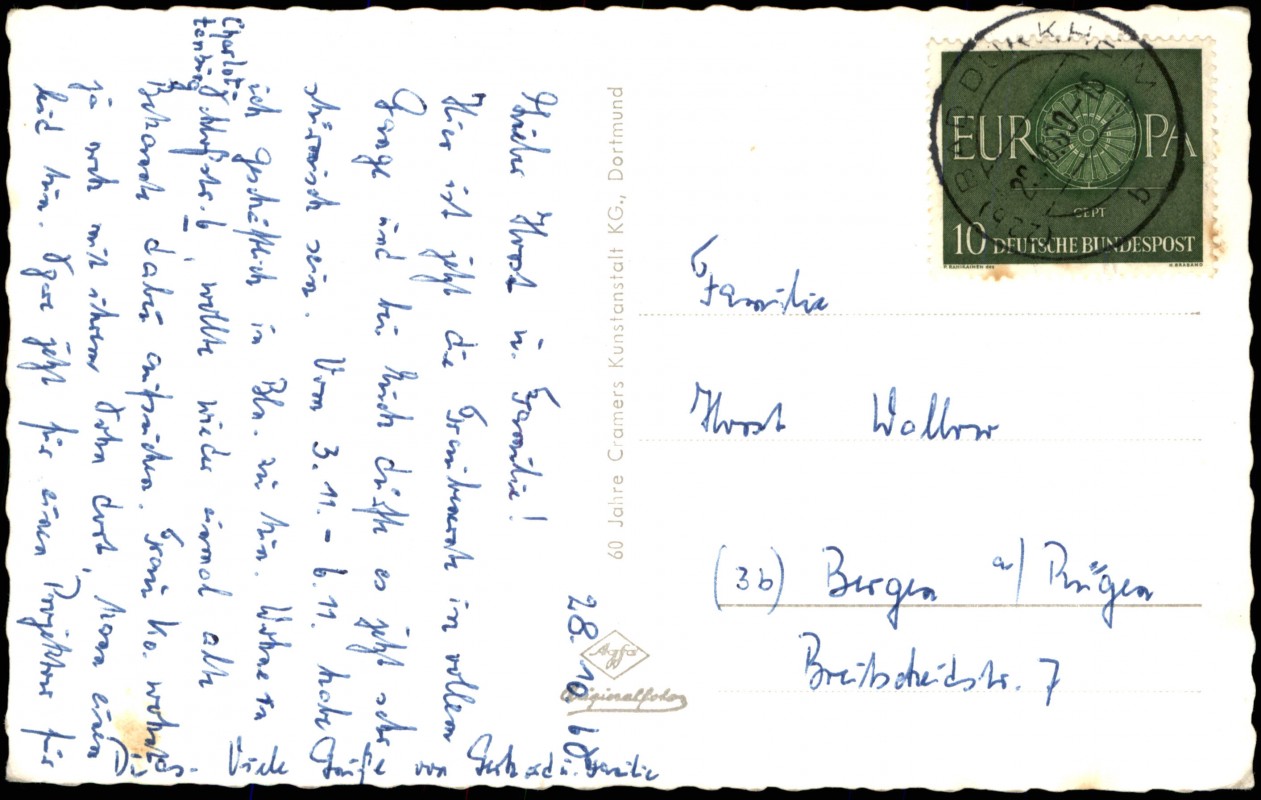 28. 10. 60
Lieber Horst u. Familie!
Hier ist jetzt die Traubenernte in vollem
Gange und bei Euch dürfte es jetzt sehr
stürmisch sein. Vom 3.11. - 6.11. habe
ich geschäftlich in Bln. zu tun. Wohne in
Charlot-
tenburg
6, wollte wieder einmal alte
Bekannte dabei aufsuchen. Frau Ko. wohnt
ja noch mit ihrem Sohn dort, kann einen
jetzt für einen Projektor für
Dias. Viele Grüße von Gerhard u. Familie
60 Jahre Cramers Kunstanstalt KG., Dortmund
Agfa
Originalfoto
BAD DÜRKHEIM
b
EUROPA
CEPT
10 DEUTSCHE BUNDESPOST
P. RAHIKAINEN
H. BRABAND
Familie
Horst Wollow
(3b) Bergen a/ Rügen
Breitscheidstr. 7